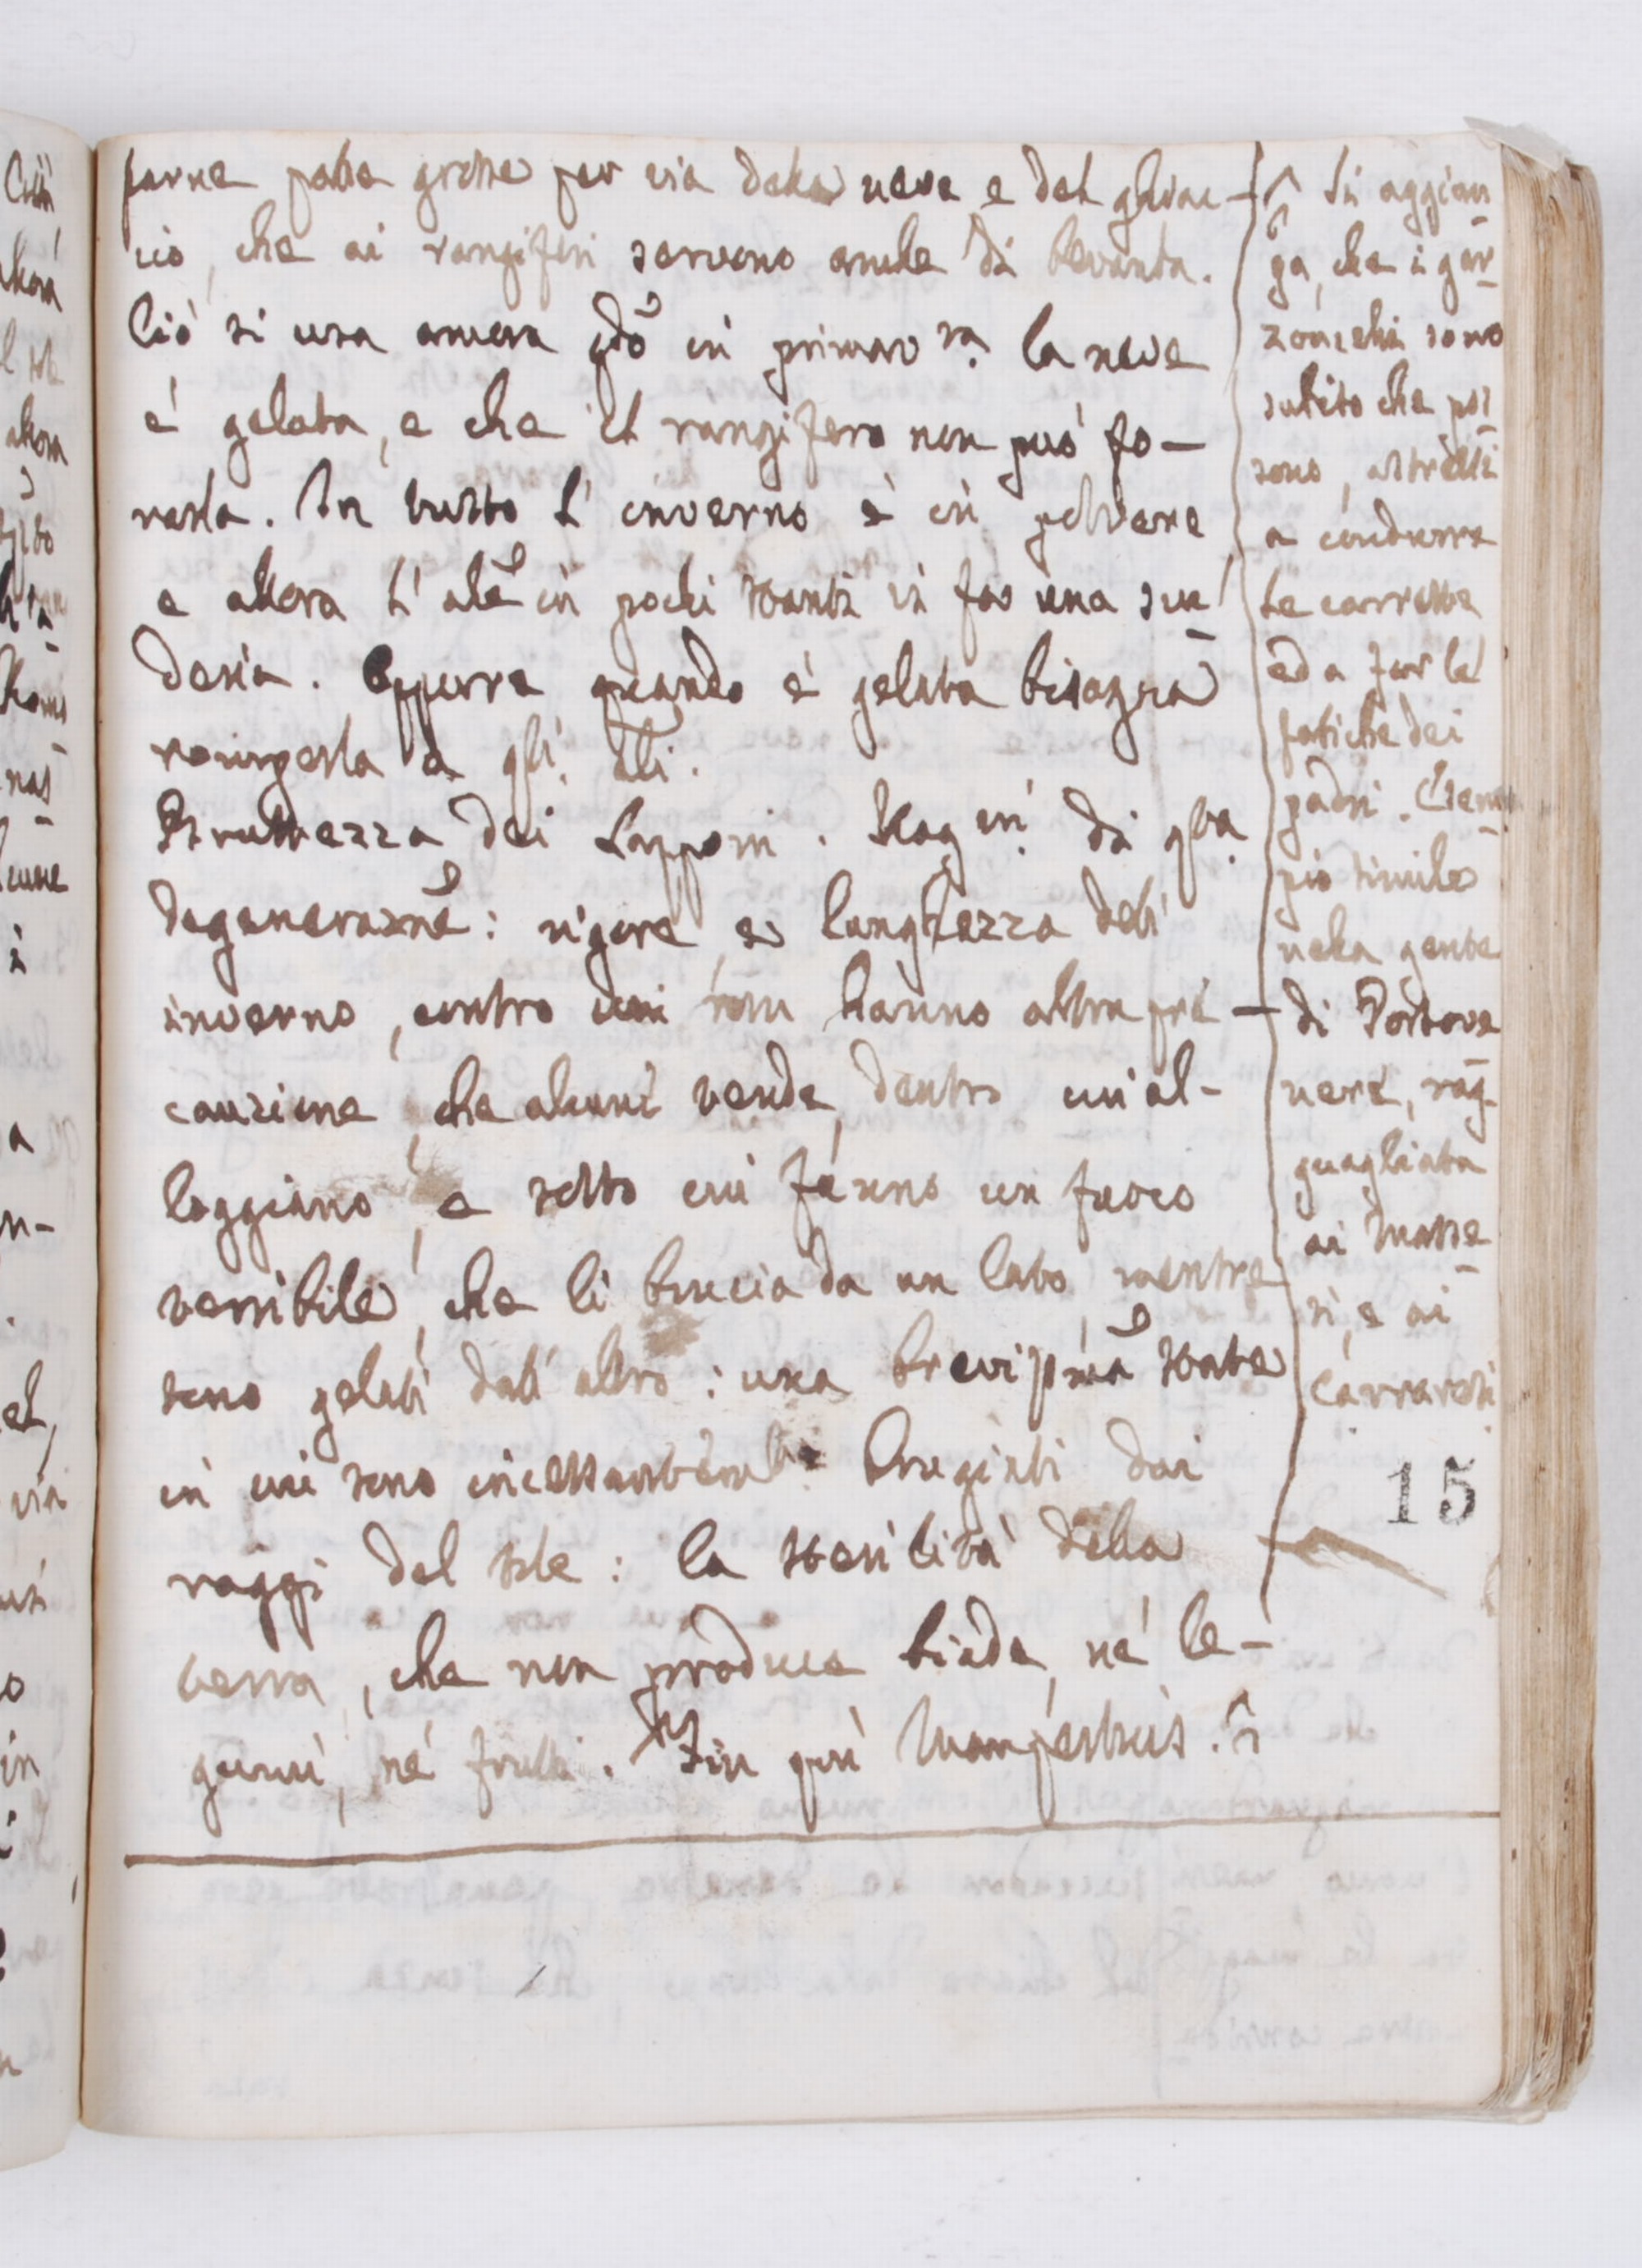 farne palle grosse per via della neve e del ghiac-
cio, che ai rangiferi servono anche di bevanda.
Ciò si usa ancora qdo in primav.ra la neve
è gelata, e che il rangifero non può fo-
rarla. In tutto l'inverno è in polvere
e allora l'ale in pochi istanti vi fa una scu
deria. Eppure quando è gelata bisogna
romperla a gli ali.
Bruttezza dei Lapponi. Rag.ni di q.ta
degenerazne: rigore, e lunghezza dell'
inverno, contro cui non hanno altra pre-
cauzione, che alcune tende, dentro cui al-
loggiano, e sotto cui fanno un fuoco
terribile, che li brucia da un lato, mentre
sono gelati dall'altro: una brevissma state
in cui sono incessantem.te brugiati dai
raggi del sole: la sterilità della
terra, che non produce biade, né le-
gumi, né frutti. Fin quì Maupertuis.
Si aggiun
ga, che i gar
zoncelli sono
subito che pos
sono, astretti
a condurre
le carrette
ed a far le
fatiche dei
padri. Esem
pio simile
nella gente
di Portove
nere, rag
guagliata
ai Masse
si, e ai
Carraresi
15